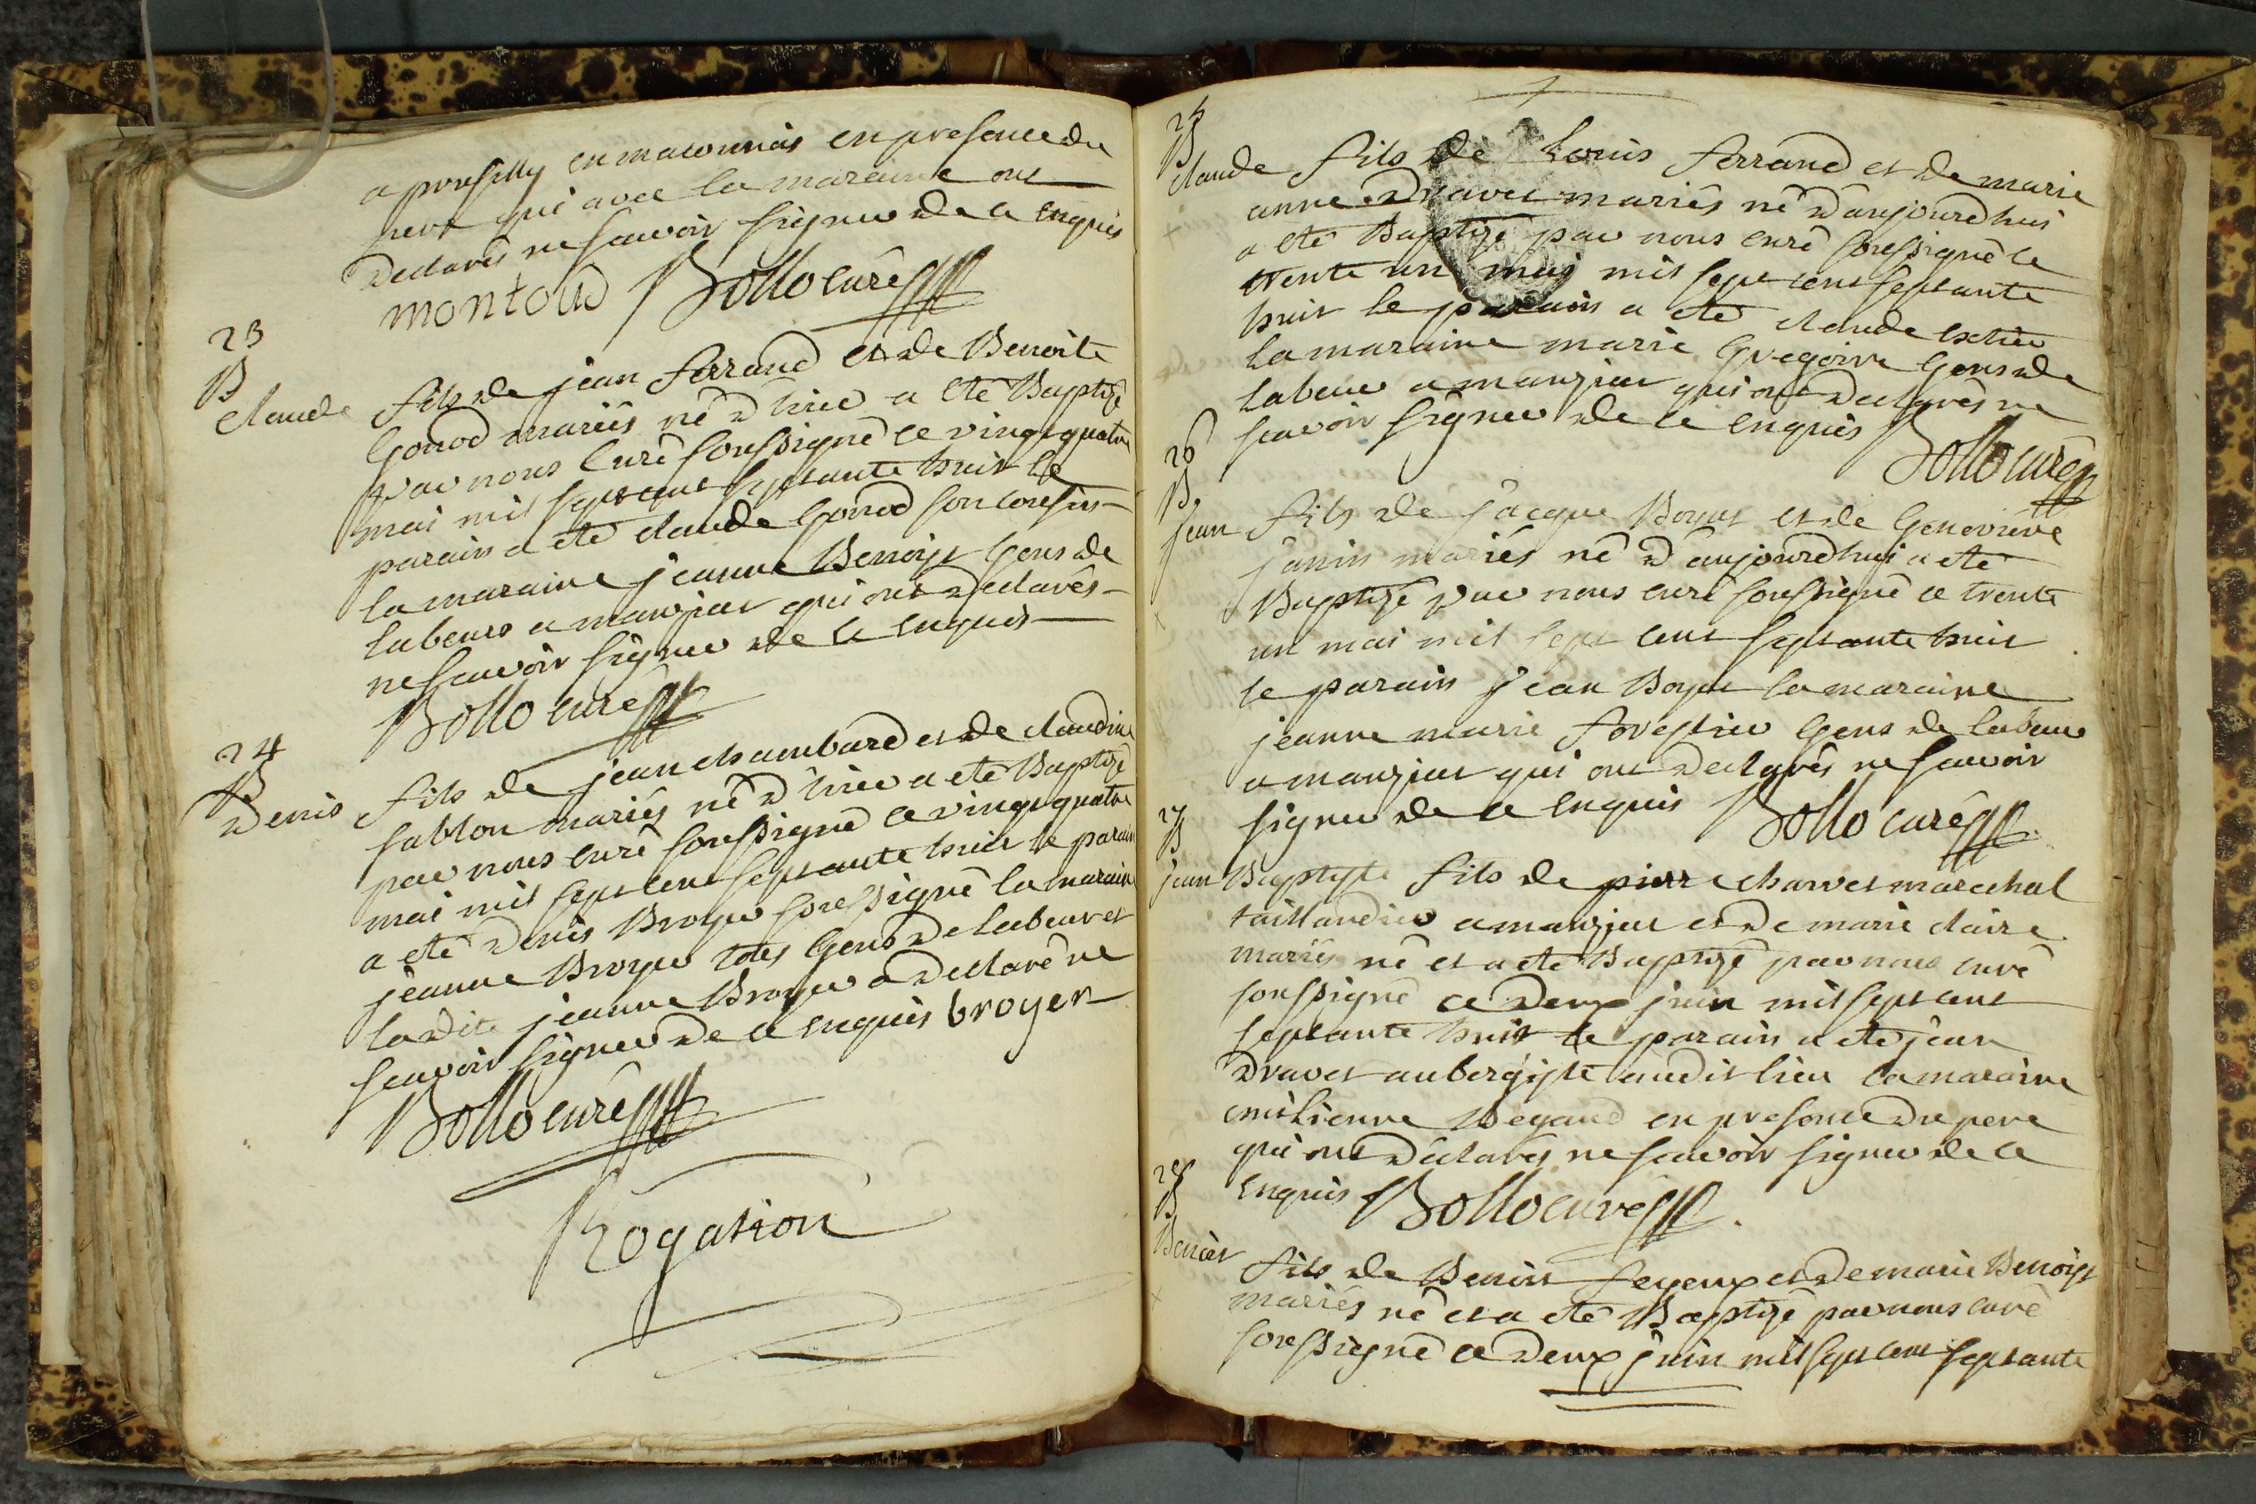 a prusilly en maconnois en presence du
pere qui avec la maraine ont
declarés ne scavoir signer de ce enquis
montoud Bollo curé
23
B
claude fils de jean ferrand et de Benoite
Gonod mariés né d'hier a été Baptizé
par nous curé soussigné ce vingt quatre
mai mil sept cent septante huit le
parain a été claude Gonod son cousin
la maraine jeanne Benoist Gens de
labeur a manziat qui ont declarés
ne scavoir signer de ce enquis
Bollo curé
24
B
Denis fils de jean chambard et de claudine
sablon mariés né d'hier a été Baptizé
par nous curé soussigné ce vingt quatre
mai mil sept cent septante huit le parain
a été denis Broyer soussigné la maraine
jeanne Broyer tous Gens de labeur et
ladite jeanne Broyer a declaré ne
scavoir signer de ce enquis broyer
Bollo curé
Rogation
25
B
claude fils de Louis ferrand et de marie
anne Dravet mariés né d'aujourdhui
a été Baptizé par nous curé soussigné le
trente un mai mil sept cent septante
huit le parain a été claude
la maraine marie Gregoire Gens de
labeur a manziat qui ont declarés ne
scavoir signer de ce enquis
Bollo curé
26
B.
jean fils de jacque Boyat et de Genevieve
janin mariés né d'aujourdhui a été
Baptizé par nous curé soussigné ce trente
un mai mil sept cent septante huit
le parain jean Boyat la maraine
jeanne marie forestier Gens de labeur
a manziat qui ont declarés ne scavoir
signer de ce enquis Bollo curé
27
B
jean Baptyste fils de pierre charvet marechal
taillandier a manziat et de marie claire
mariés né et a été Baptizé par nous curé
soussigné ce deux juin mil sept cent
septante huit le parain a été jean
Dravet aubergiste audit lieu la maraine
emilienne Degand en presence du pere
qui ont declarés ne scavoir signer de ce
enquis Bollo curé
28
B
Benoit fils de Benoit feyeux et de marie Benoist
mariés né et a été Baptizé par nous curé
soussigné ce deux juin mil sept cent septante